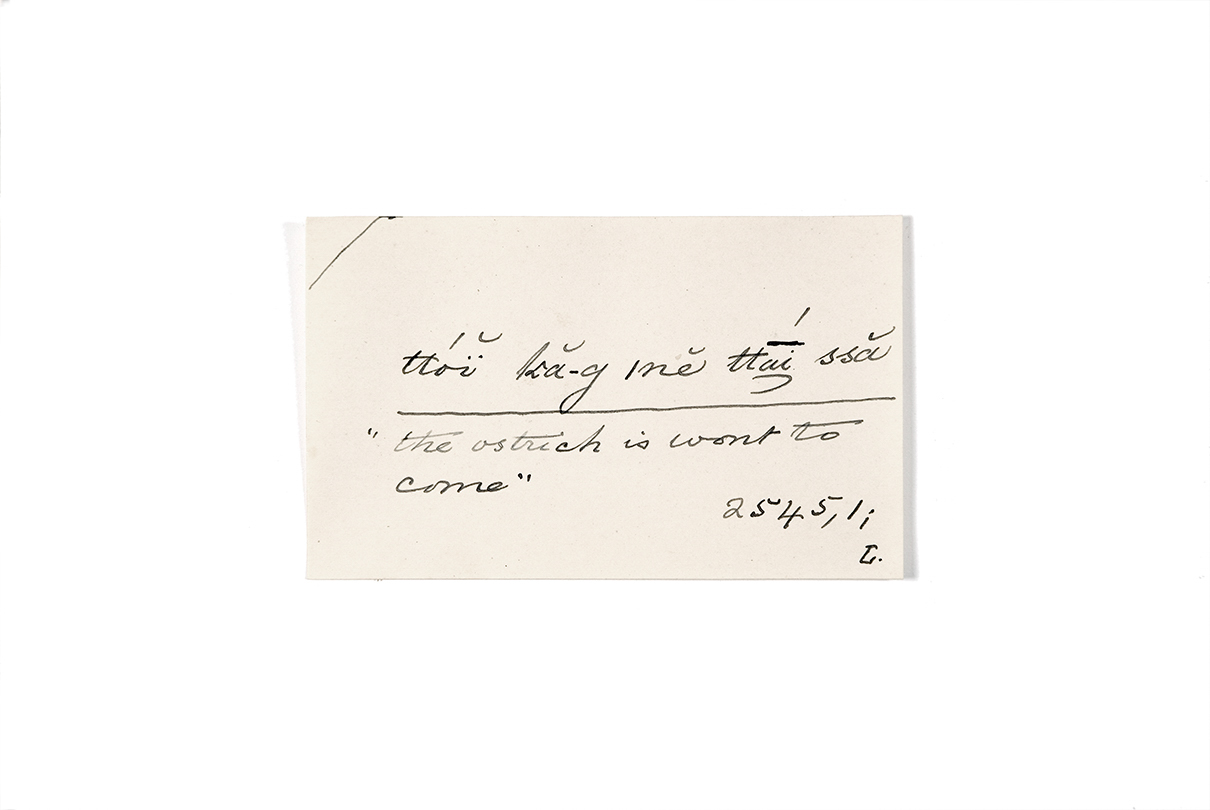 ttóï̆ kă-g ıně tta̱í ssă
"the ostrich is wont to
come"
2545,1;
L.